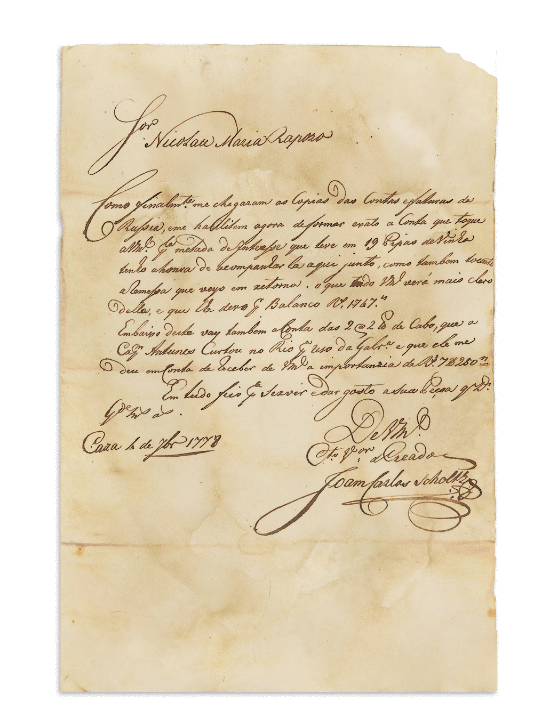 Sor. Nicolau Maria Rapozo
Como finalmte. me chegaram as Copias das Contas e faturas de
Russia, e me habilitem agora de formar exato a Conta que toque
a Vm. pa. metade de que teve em 19 Pipas de Vinho
tenho ahonra de acompanhar la aqui junto, como tambem tocante
a Remessa que veyo em retorno. o que tudo Vm verá mais claro
della, e que de Balanco Rs. 1767.
Embaixo deste vay tambem a Conta das de Cabo, que a
Capm. Antunes no Rio uso da Galra. e que ele me
deu em Conta de receber de Vm a importanzia de Rs. 7250
Em tudo fico pa. servir e dar gosto a sua Peçoa qe. Ds.
Gde. ms. as.
Caza 4 de 7br 1778
De Vm.
Mto. Vor. a Creado
Joam Carlos Scholtz